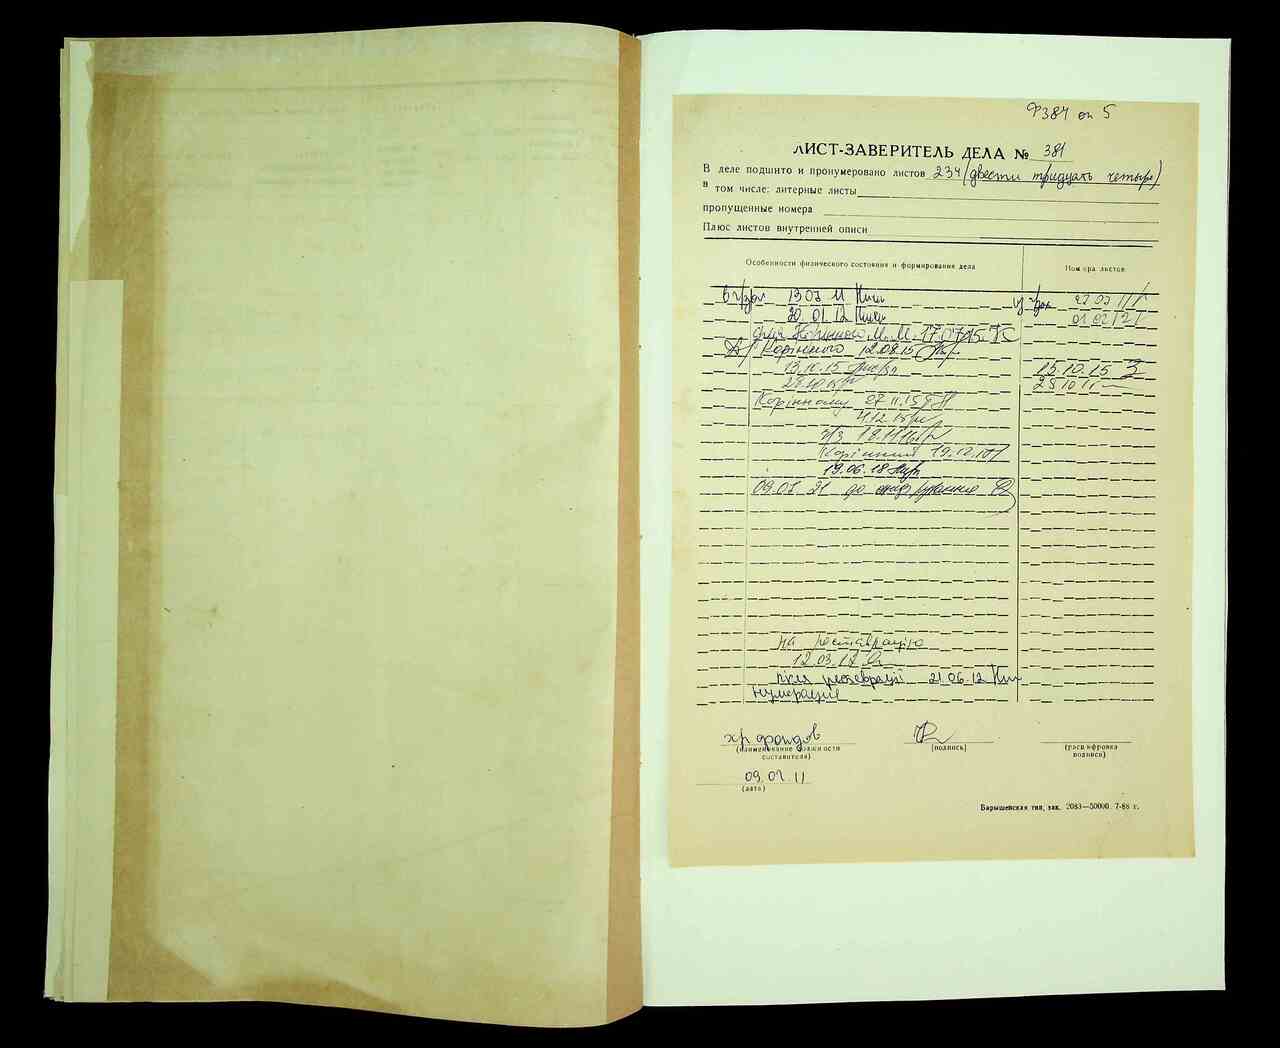 Ф384 оп 5
ЛИСТ-ЗАВЕРИТЕЛЬ ДЕЛА № 381
В деле подшито и пронумеровано листов 234 (двести тридцать четыре)
в том числе: литерные листы
пропущенные номера
Плюс листов внутренней описи
Особенности физического состояния и формирования дела
Номера листов
13 07 11
20.01.12
для Корінного М. М. 17.07.15
Корінного 12.08.15
13.10.15
15.10.15
Корінному 27 11.15
4.12 15
Корінний 19.12.
19.06.18
09.07 21 до
на реставрацію
12.03.12
після реставрації 21.06.12
нумерация
хр фондов
(наименование должности составителя)
(подпись)
(расшифровка подписи)
09.07.11
(дата)
Барышевская тип, зак. 2083—50000 7-88 г.